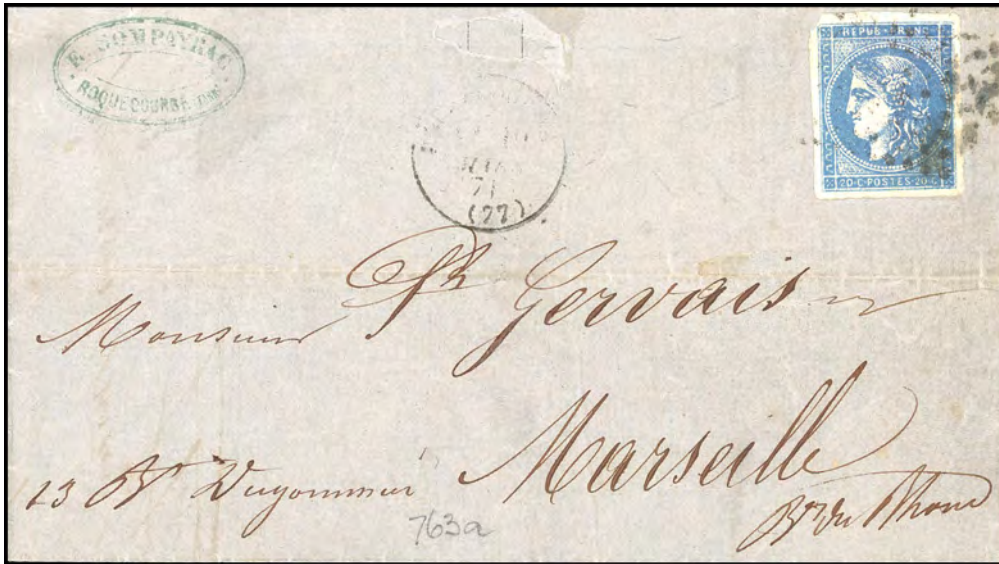 E. COMPAYRAC.
ROQUECOURBE
71
(77)
REPUB · FRANC
20·C·POSTES·20·C
Monsieur Gervais
Marseille
13 Bd Dugommier
Bes du Rhone
763a